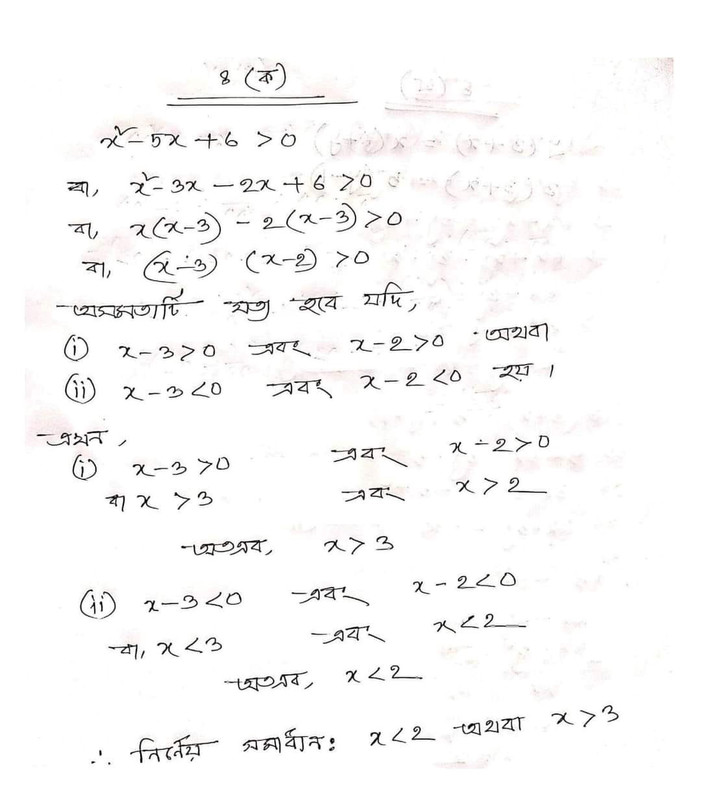 ৪ (ক)
x² - 5x + 6 > 0
বা, x² - 3x - 2x + 6 > 0
বা, x(x-3) - 2(x-3) > 0
বা, (x-3) (x-2) > 0
অসমতাটি সত্য হবে যদি,
(i) x-3 > 0 এবং x-2 > 0 অথবা
(ii) x-3 < 0 এবং x-2 < 0 হয়।
এখন,
(i) x-3 > 0 এবং x-2 > 0
বা x > 3 এবং x > 2
অতএব, x > 3
(ii) x-3 < 0 এবং x-2 < 0
বা, x < 3 এবং x < 2
অতএব, x < 2
∴ নির্ণেয় সমাধান: x < 2 অথবা x > 3